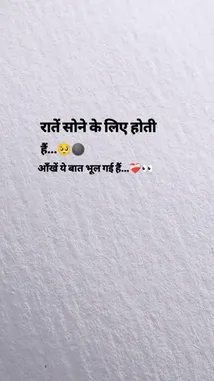 रातें सोने के लिए होती
हैं...🥺🌑
आँखें ये बात भूल गई हैं...❤️‍🩹👀